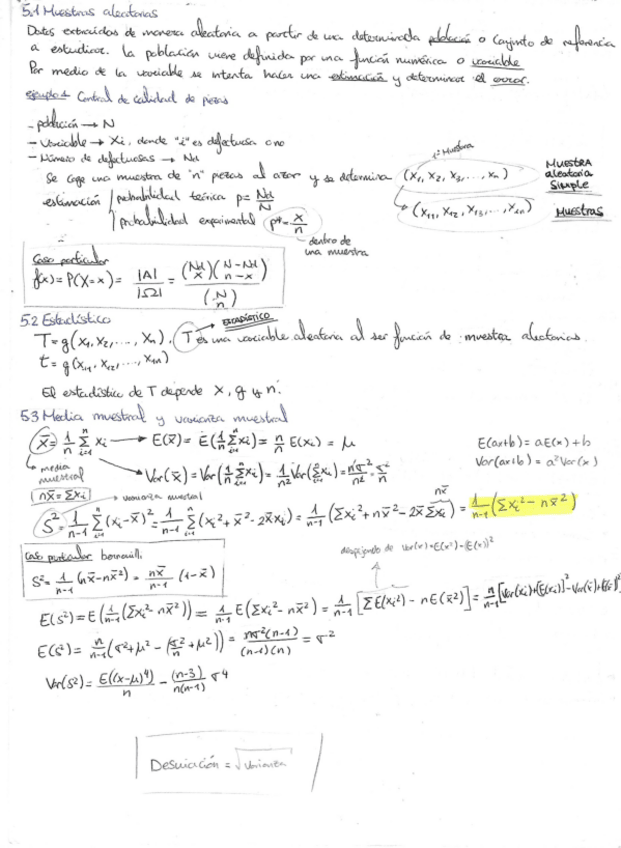 5.1 Muestras aleatorias
Datos extraídos de manera aleatoria a partir de una determinada población o conjunto de referencia
a estudiar. La población viene definida por una función numérica o variable
Por medio de la variable se intenta hacer una estimación y determinar el error.
ejemplo 1 Control de calidad de piezas
- población → N
- Variable → Xi, donde "i" es defectuosa o no
- Número de defectuosas → Nd
1ª Muestra
Se coge una muestra de "n" piezas al azar y se determina (X1, X2, X3, ..., Xn)
MUESTRA aleatoria SIMPLE
estimación / probabilidad teórica p = Nd/N
(X11, X12, X13, ..., X1n) Muestras
probabilidad experimental p* = X/n
dentro de una muestra
Caso particular
f(x) = P(X=x) = |A|/|Ω| = (Nd x)(N-Nd n-x) / (N n)
5.2 Estadístico
ESTADÍSTICO
T = g(X1, X2, ..., Xn). T es una variable aleatoria al ser función de muestra aleatorias.
t = g(X11, X12, ..., X1n)
El estadístico de T depende X, g y n.
5.3 Media muestral y varianza muestral
X̄ = 1/n Σ(i=1..n) Xi → E(X̄) = E(1/n Σ(i=1..n) Xi) = n/n E(Xi) = μ
E(ax+b) = aE(x)+b
Var(ax+b) = a² Var(x)
media muestral
Var(X̄) = Var(1/n Σ(i=1..n) Xi) = 1/n² Var(Σ(i=1..n) Xi) = nσ²/n² = σ²/n
nX̄ = ΣXi
varianza muestral
nX̄
S² = 1/(n-1) Σ(i=1..n) (Xi-X̄)² = 1/(n-1) Σ(i=1..n) (Xi²+X̄²-2X̄Xi) = 1/(n-1) (ΣXi²+nX̄²-2X̄ΣXi) = 1/(n-1) (ΣXi²-nX̄²)
Caso particular bernouilli
S² = 1/(n-1) (nX̄-nX̄²) = nX̄/(n-1) (1-X̄)
despejando de Var(x)=E(x²)-(E(x))²
E(S²) = E(1/(n-1) (ΣXi²-nX̄²)) = 1/(n-1) E(ΣXi²-nX̄²) = 1/(n-1) [ΣE(Xi²)-nE(X̄²)] = n/(n-1) [Var(Xi)+(E(Xi))²-Var(X̄)-(E(X̄))²]
E(S²) = n/(n-1) (σ²+μ²-(σ²/n+μ²)) = nσ²(n-1)/((n-1)(n)) = σ²
Var(S²) = E((X-μ)⁴)/n - (n-3)/(n(n-1)) σ⁴
Desviación = √varianza